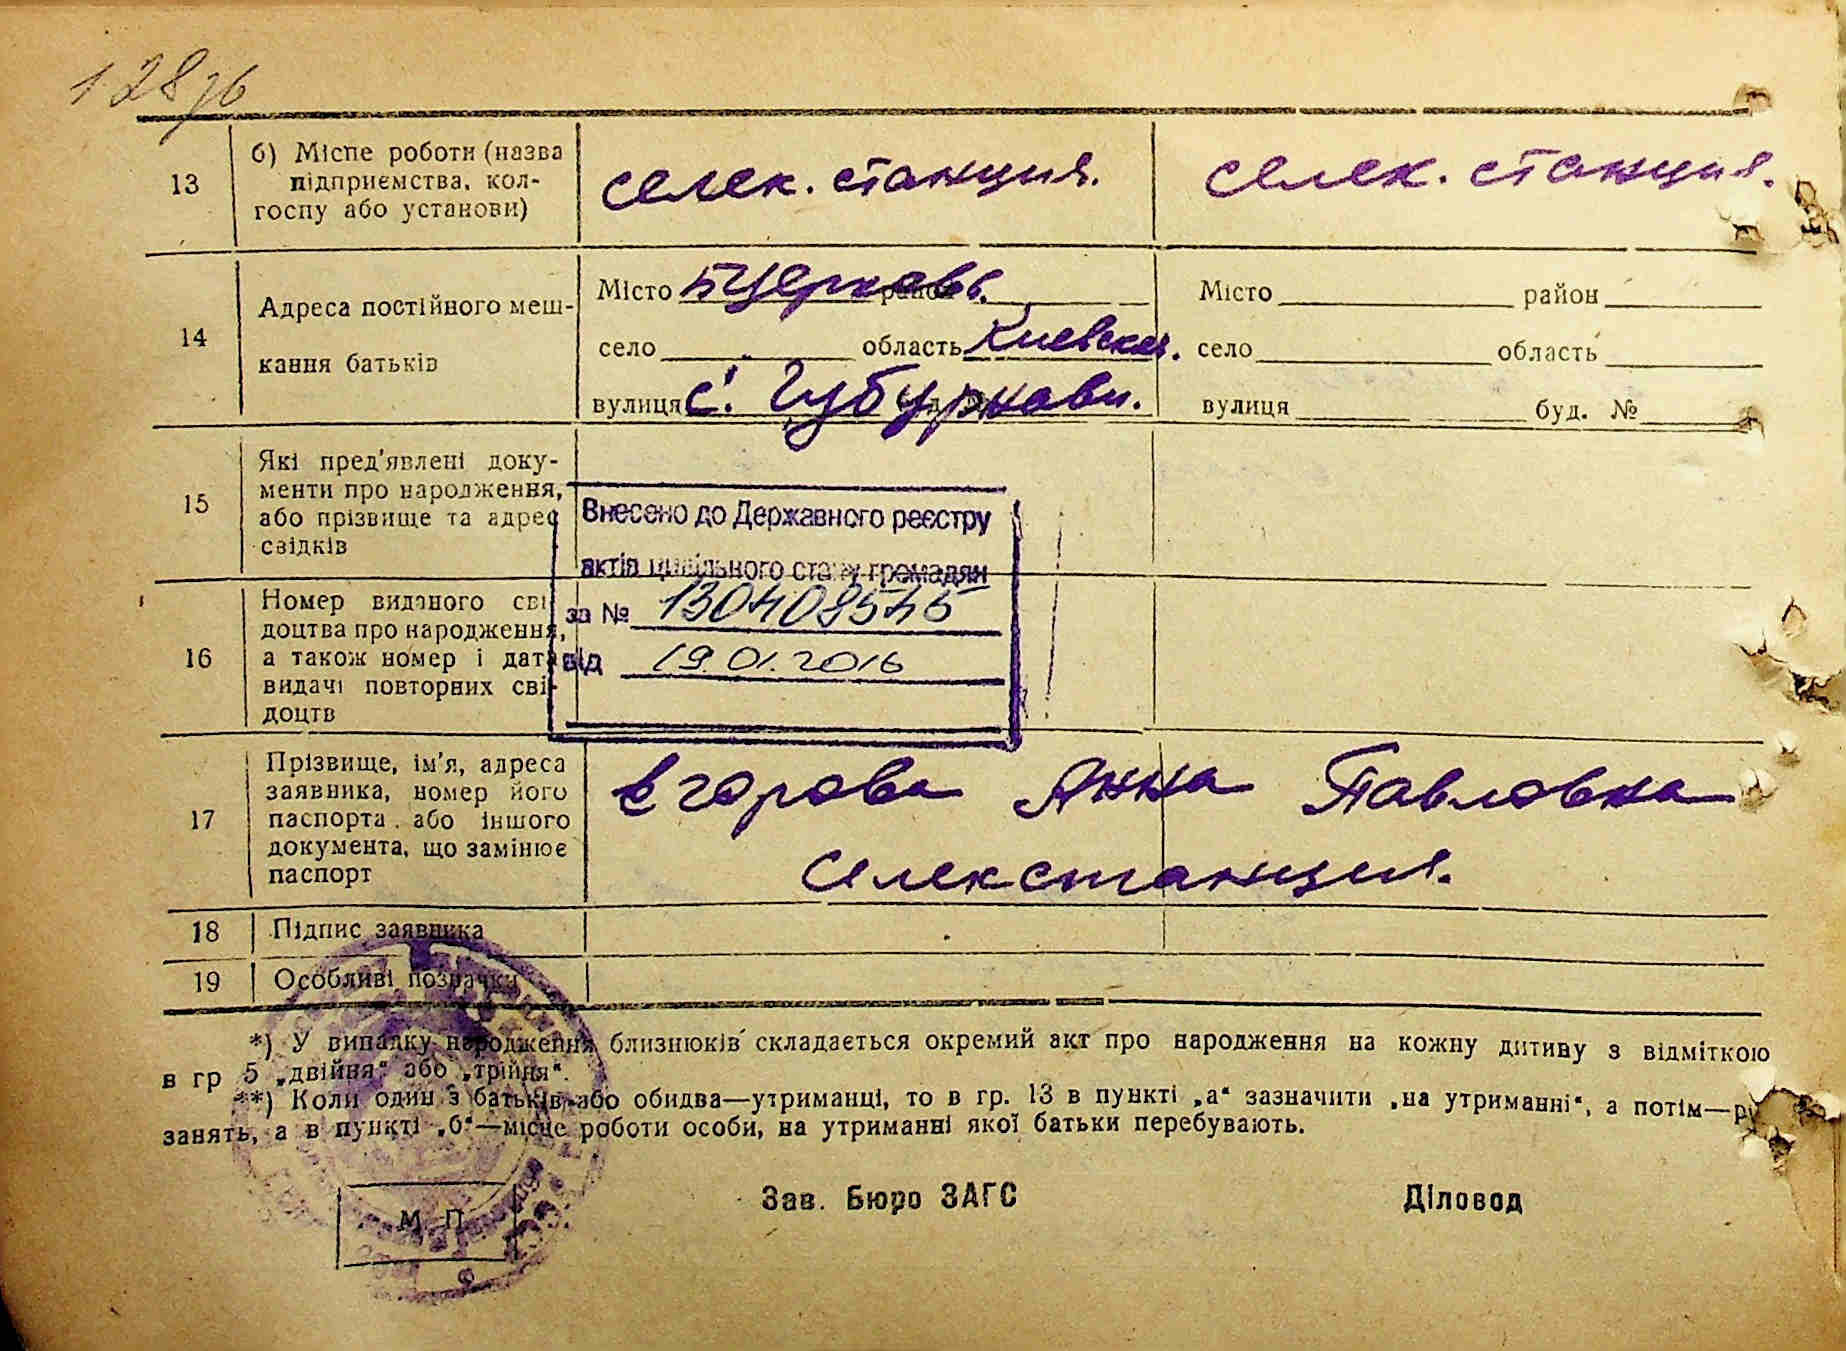 13
б) Місце роботи (назва
підприємства, кол-
госпу або установи)
селек. станция.
селек. станция.
14
Адреса постійного меш-
кання батьків
Місто Бцерковь. район
село область Киевская.
вулиця с.
Місто район
село область
вулиця буд. №
15
Які пред'явлені доку-
менти про народження,
або прізвище та адрес
свідків
Внесено до Державного реєстру
актів цивільного стану громадян
за №
від 19.01.2016
16
Номер виданого сві
доцтва про народження,
а також номер і дата
видачі повторних сві-
доцтв
17
Прізвище, ім'я, адреса
заявника, номер його
паспорта або іншого
документа, що замінює
паспорт
Егорова Анна Павловна
Селекстанция.
18
Підпис заявника
19
Особливі позначки
*) У випадку народження близнюків складається окремий акт про народження на кожну дитину з відміткою
в гр 5 „двійня“ або „трійня“.
**) Коли один з батьків або обидва—утриманці, то в гр. 13 в пункті „а“ зазначити „на утриманні“, а потім—р
занять, а в пункті „б“—місце роботи особи, на утриманні якої батьки перебувають.
Зав. Бюро ЗАГС
Діловод
М П